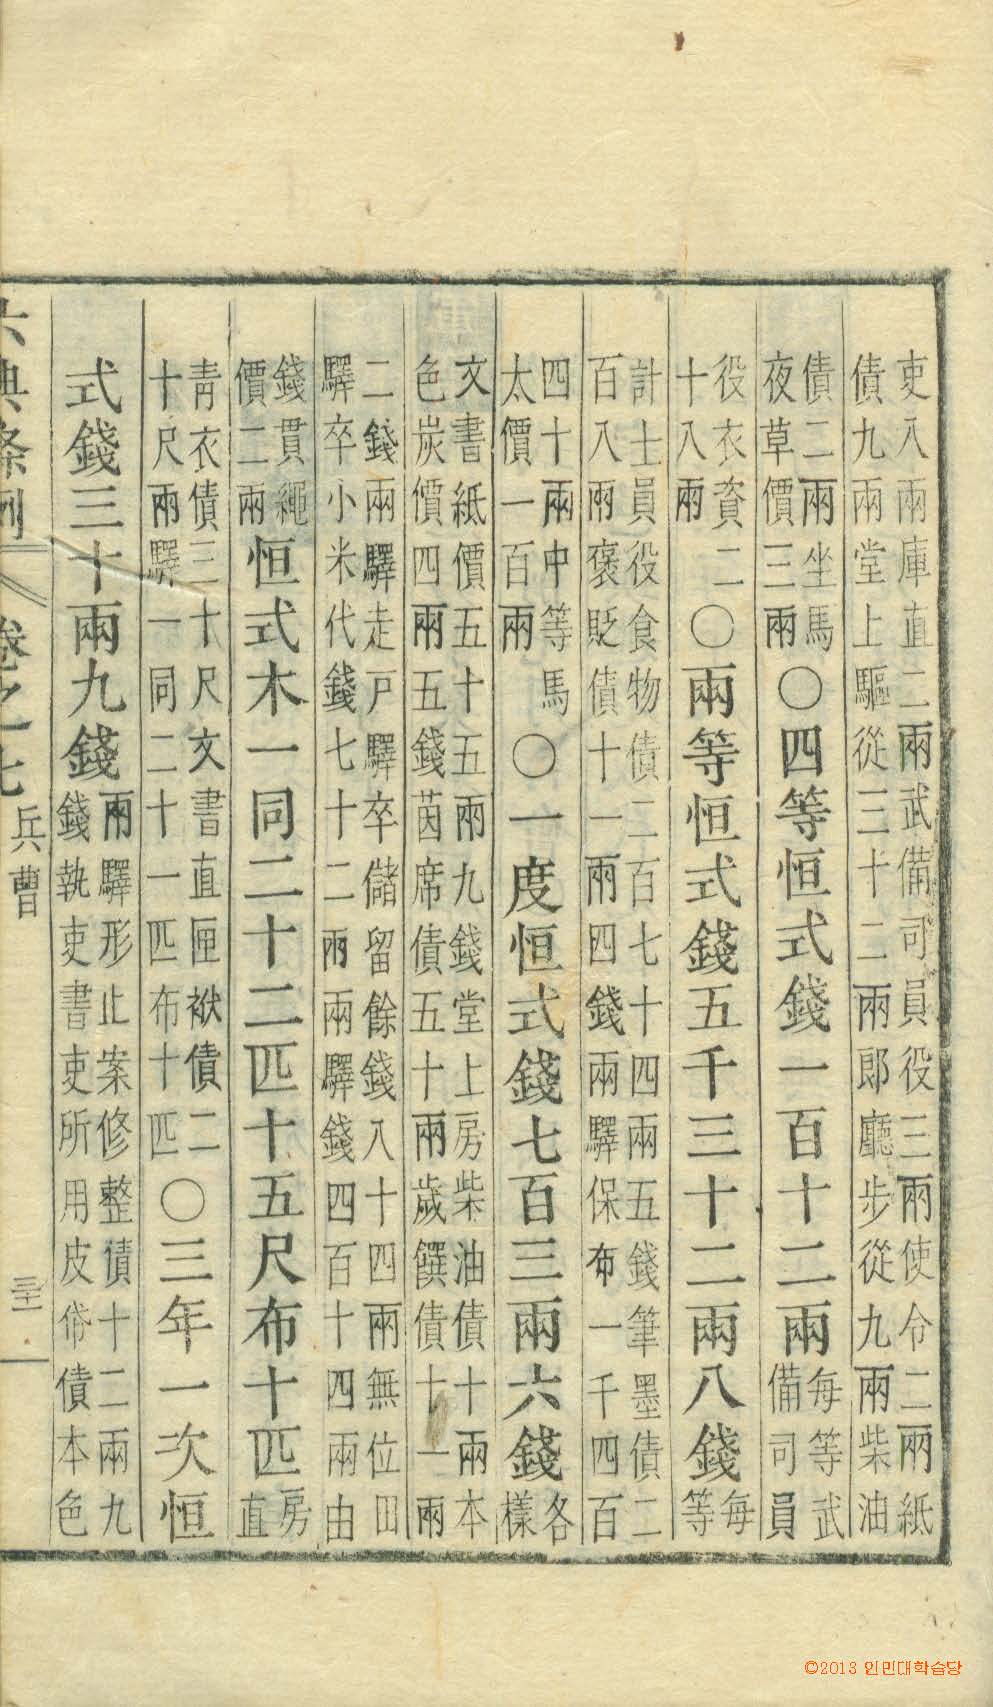 吏八兩庫直二兩武備司員役三兩使令二兩紙
債九兩堂上驅從三十二兩郞廳步從九兩柴油
債二兩坐馬
夜草價三兩
〇四等恒式錢一百十二兩
每等武
備司員
役衣資二
十八兩
〇兩等恒式錢五千三十二兩八錢
每
等
計士員役食物債二百七十四兩五錢筆墨債二
百八兩褒貶債十一兩四錢兩驛保布一千四百
四十兩中等馬
太價一百兩
〇一度恒式錢七百三兩六錢
各
樣
文書紙價五十五兩九錢堂上房柴油債十兩本
色炭價四兩五錢茵席債五十兩歲饌債十一兩
二錢兩驛走戶驛卒儲留餘錢八十四兩無位田
驛卒小米代錢七十二兩兩驛錢四百十四兩由
錢貫繩
價二兩
恒式木一同二十二匹十五尺布十匹
房
直
靑衣債三十尺文書直匣袱債二
十尺兩驛一同二十一匹布十匹
〇三年一次恒
式錢三十兩九錢
兩驛形止案修整債十二兩九
錢執吏書吏所用皮帒債本色
六典條例 卷之七 兵曹
©2013 인민대학습당